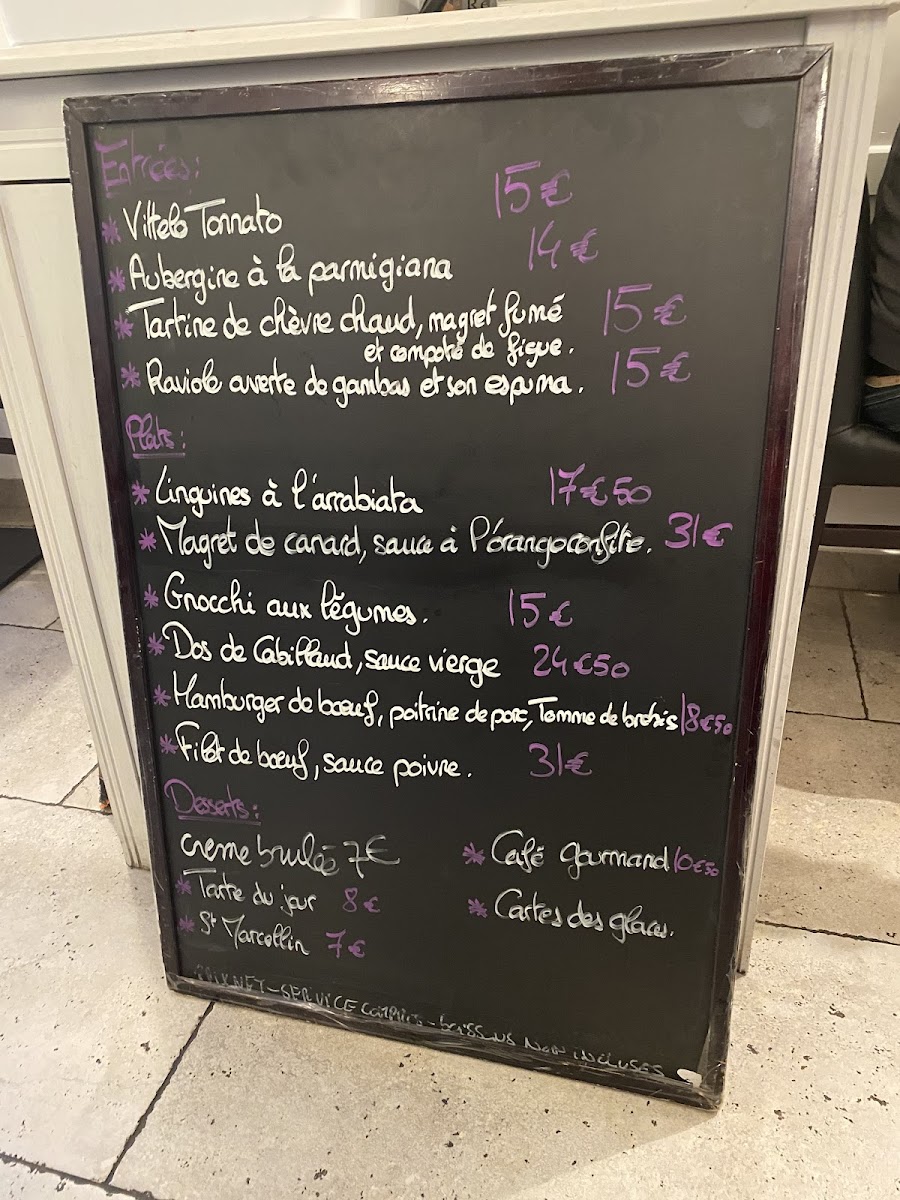 Entrées:
* Vittelo Tonnato 15€
* Aubergine à la parmigiana 14€
* Tartine de chèvre chaud, magret fumé 15€
et compoté de figue.
* Raviole ouverte de gambas et son espuma. 15€
Plats:
* Linguines à l'arrabiata 17€50
* Magret de canard, sauce à l'orange confite. 31€
* Gnocchi aux légumes. 15€
* Dos de Cabillaud, sauce vierge 24€50
* Hamburger de bœuf, poitrine de porc, Tomme de brebis 18€50
* Filet de bœuf, sauce poivre. 31€
Desserts:
creme brulée 7€ * Café gourmand 10€50
* Tarte du jour 8€ * Cartes des glaces.
* St Marcellin 7€
PRIX NET - SERVICE compris - boissons NON INCLUSES